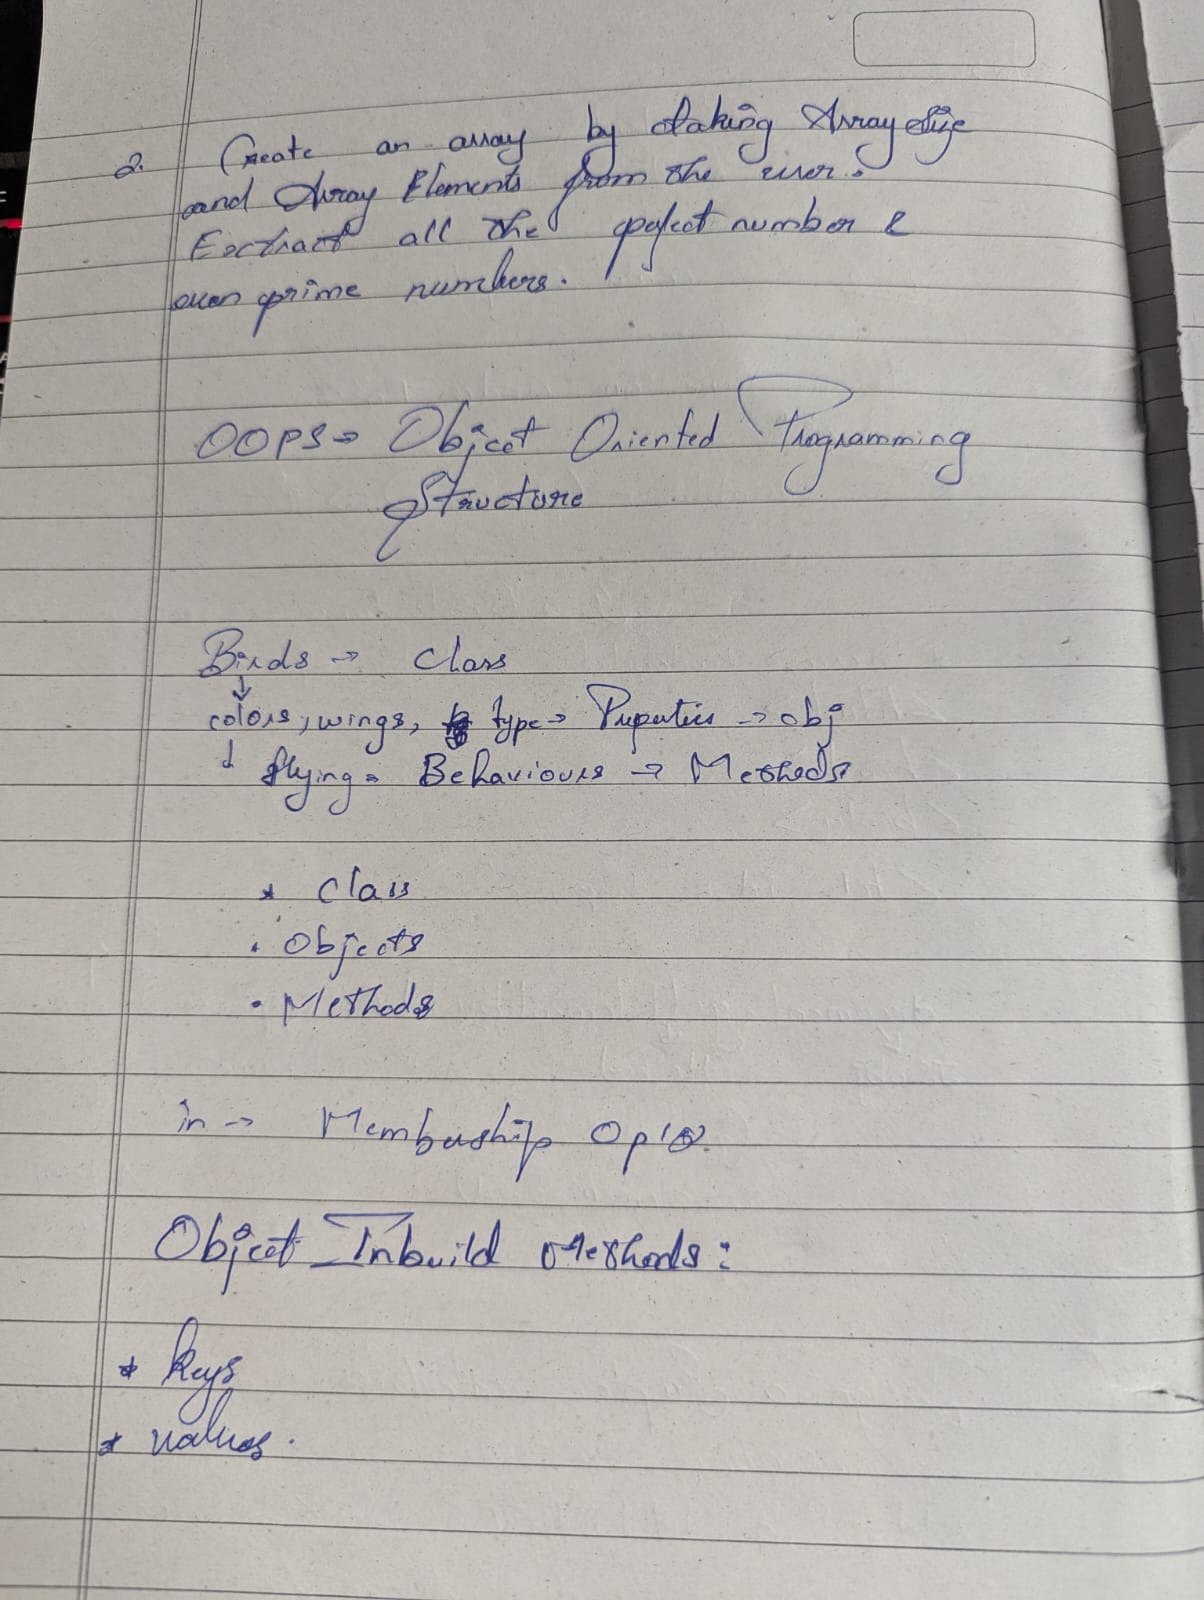 2. Create an array by taking Array size
and Array Elements from the user.
Exctract all the pefect number &
even prime numbers.
OOPS → Object Oriented Programming
Structure
Birds → Class
colors, wings, type → Properties → obj
flying → Behaviours → Methods
* Class
• Objects
• Methods
in → Membership
Object Inbuild Methods:
* keys
* values.